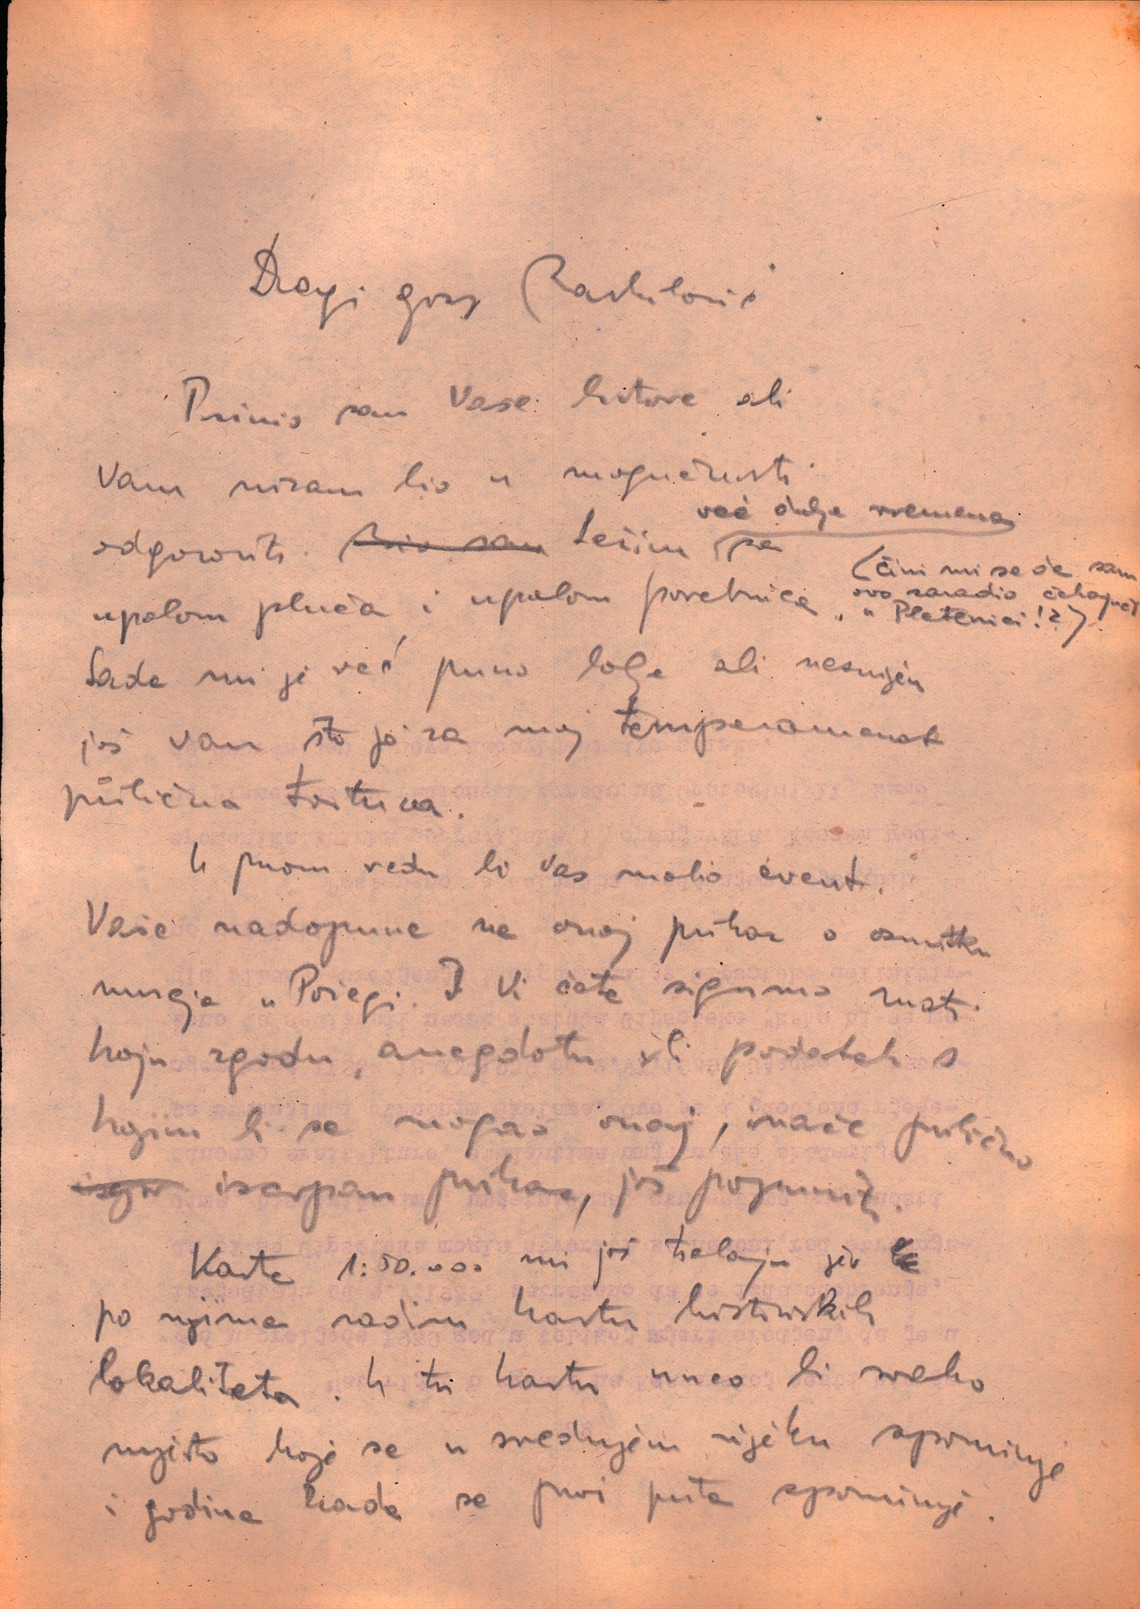 Dragi gosp
Primio sam Vaše listove ali
Vam nisam bio u mogućnosti
odgovoriti. Bio sam Ležim već dulje vremena sa
upalom pluća i upalom porebrice (čini mi se da sam
ovo zaradio čekajući
u Pleternici!?)
Sada mi je već puno bolje ali nesmijem
još van što je za moj temperamenat
prilična tortura.
U prvom redu bi Vas molio event.
Vaše nadopune na onaj prikaz o osnutku
muzeja u Požegi. I Vi ćete sigurno znati
koju zgodu, anegdotu ili podatak s
kojim bi se mogao onaj, inače prilično
iscrpan prikaz, još popuniti.
Karte 1:50.000 mi još trebaju jer
po njima radim kartu historiskih
lokaliteta. U tu kartu uneo bi svako
mjesto koje se u srednjem vijeku spominje
i godina kada se prvi puta spominje.